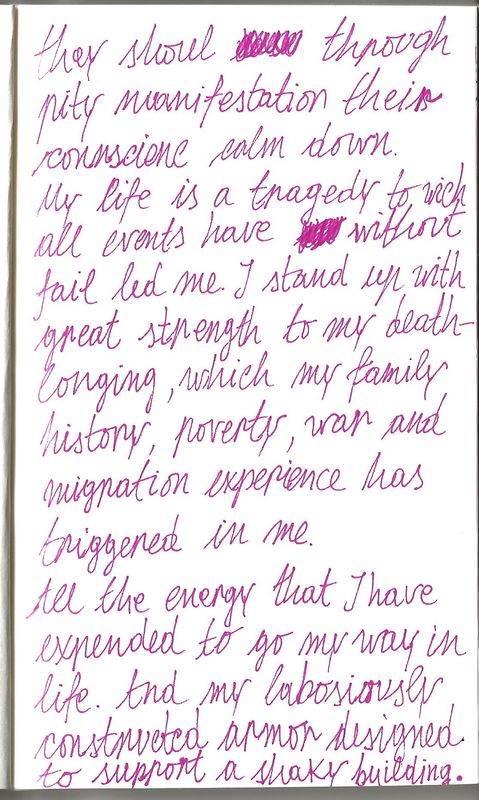 they shoul through
pity manifestation their
connscienc calm down.
My life is a tragedy to wich
all events have without
fail led me. I stand up with
great strength to my death-
longing, which my family
history, poverty, war and
migration experience has
triggered in me.
All the energy that I have
expended to go my way in
life. And my labosiously
constructed armor designed
to support a shaky building.